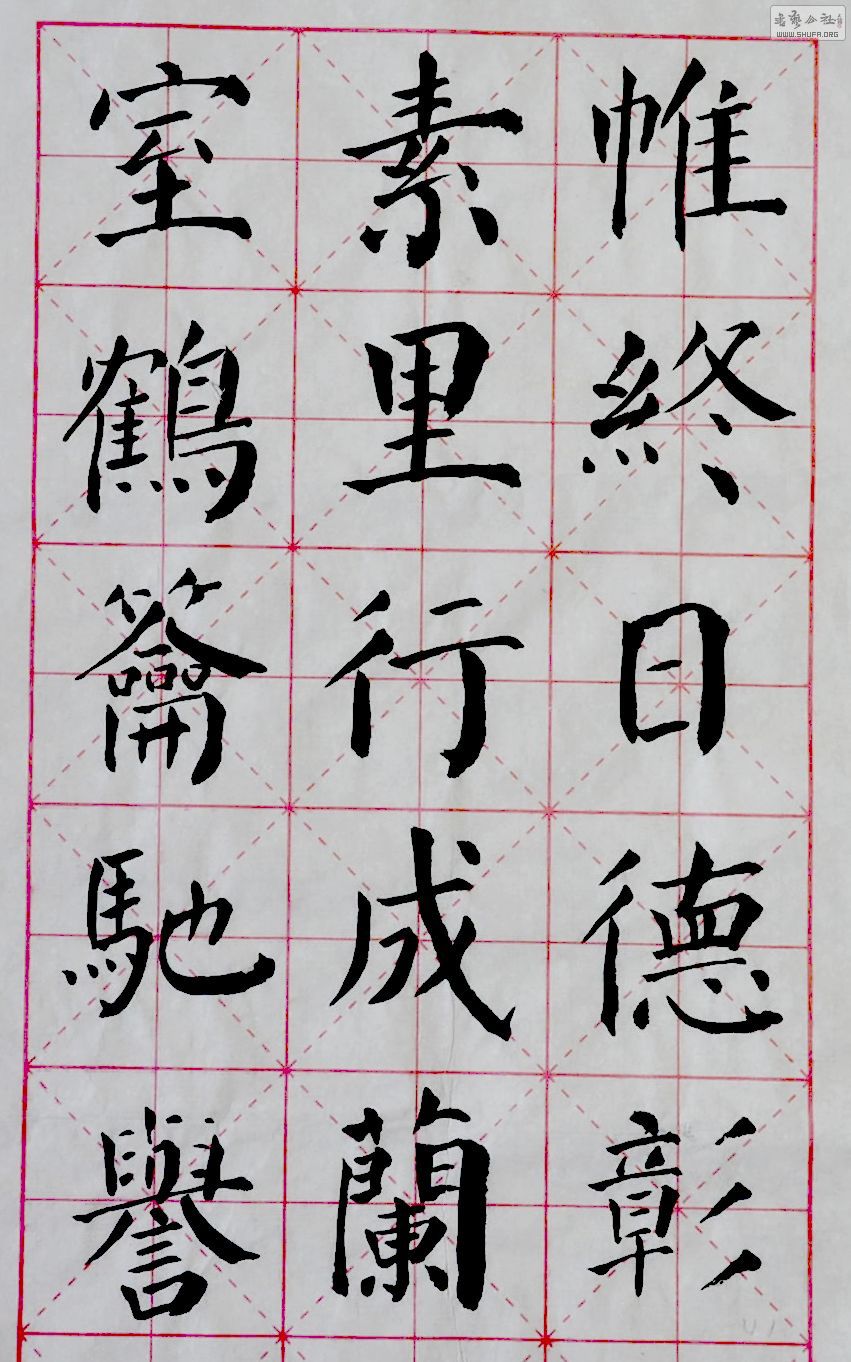 帷終日德彰
素里行成蘭
室鶴籥馳譽
書藝公社
WWW.SHUFA.ORG